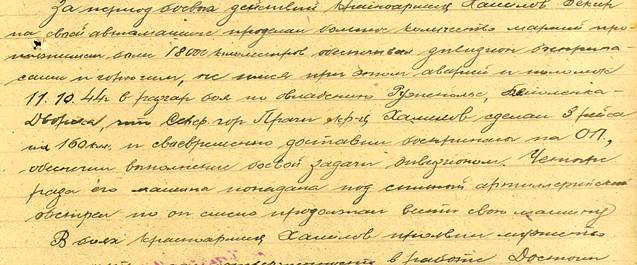 За период боевых действий красноармеец Халилов Бекир
на своей автомашине проделал большое количество маршей про-
тяжением более 18000 километров обеспечивая дивизион боеприпа-
сами и горючим, не имея при этом аварий и поломок
11.10.44г. в разгар боя по овладению Рупеньс, Белоленка-
Дворска, что Север. гор Праги кр-ц Халилов сделал 3 рейса
по 160 км. и своевременно доставил боеприпасы на ОП,
обеспечил выполнение боевой задачи дивизионом. Четыре
раза его машина попадала под сильный артиллерийский
обстрел но он смело продолжал вести свою машину
В боях красноармеец Халилов проявил мужество
в работе Достоин